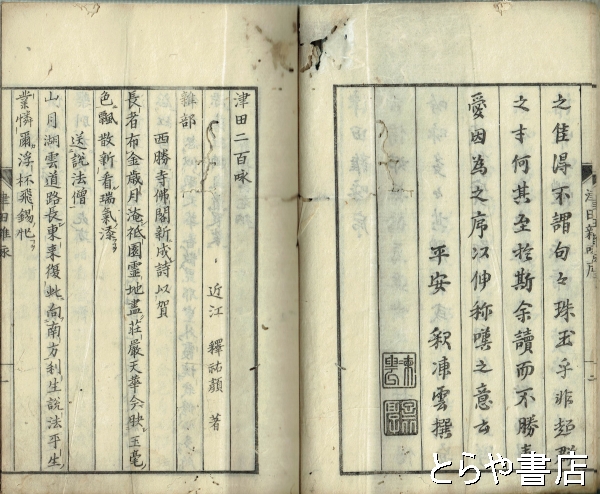 之佳得不謂句々珠玉乎非超群
之才何其至於斯余讀而不勝
愛因為之序以伸称嘆之意云
平安釈凍雲撰
津田二百咏
近江 釋祐顔 著
雜部
西勝寺佛閣新成詩以賀
長者布金歳月淹祗園霊地盡荘嚴天華今映玉毫
色飄散新看瑞氣添
送説法僧
山月湖雲道路長東来復此向南方利生説法平生
業憐爾浮杯飛錫忙
とらや書店